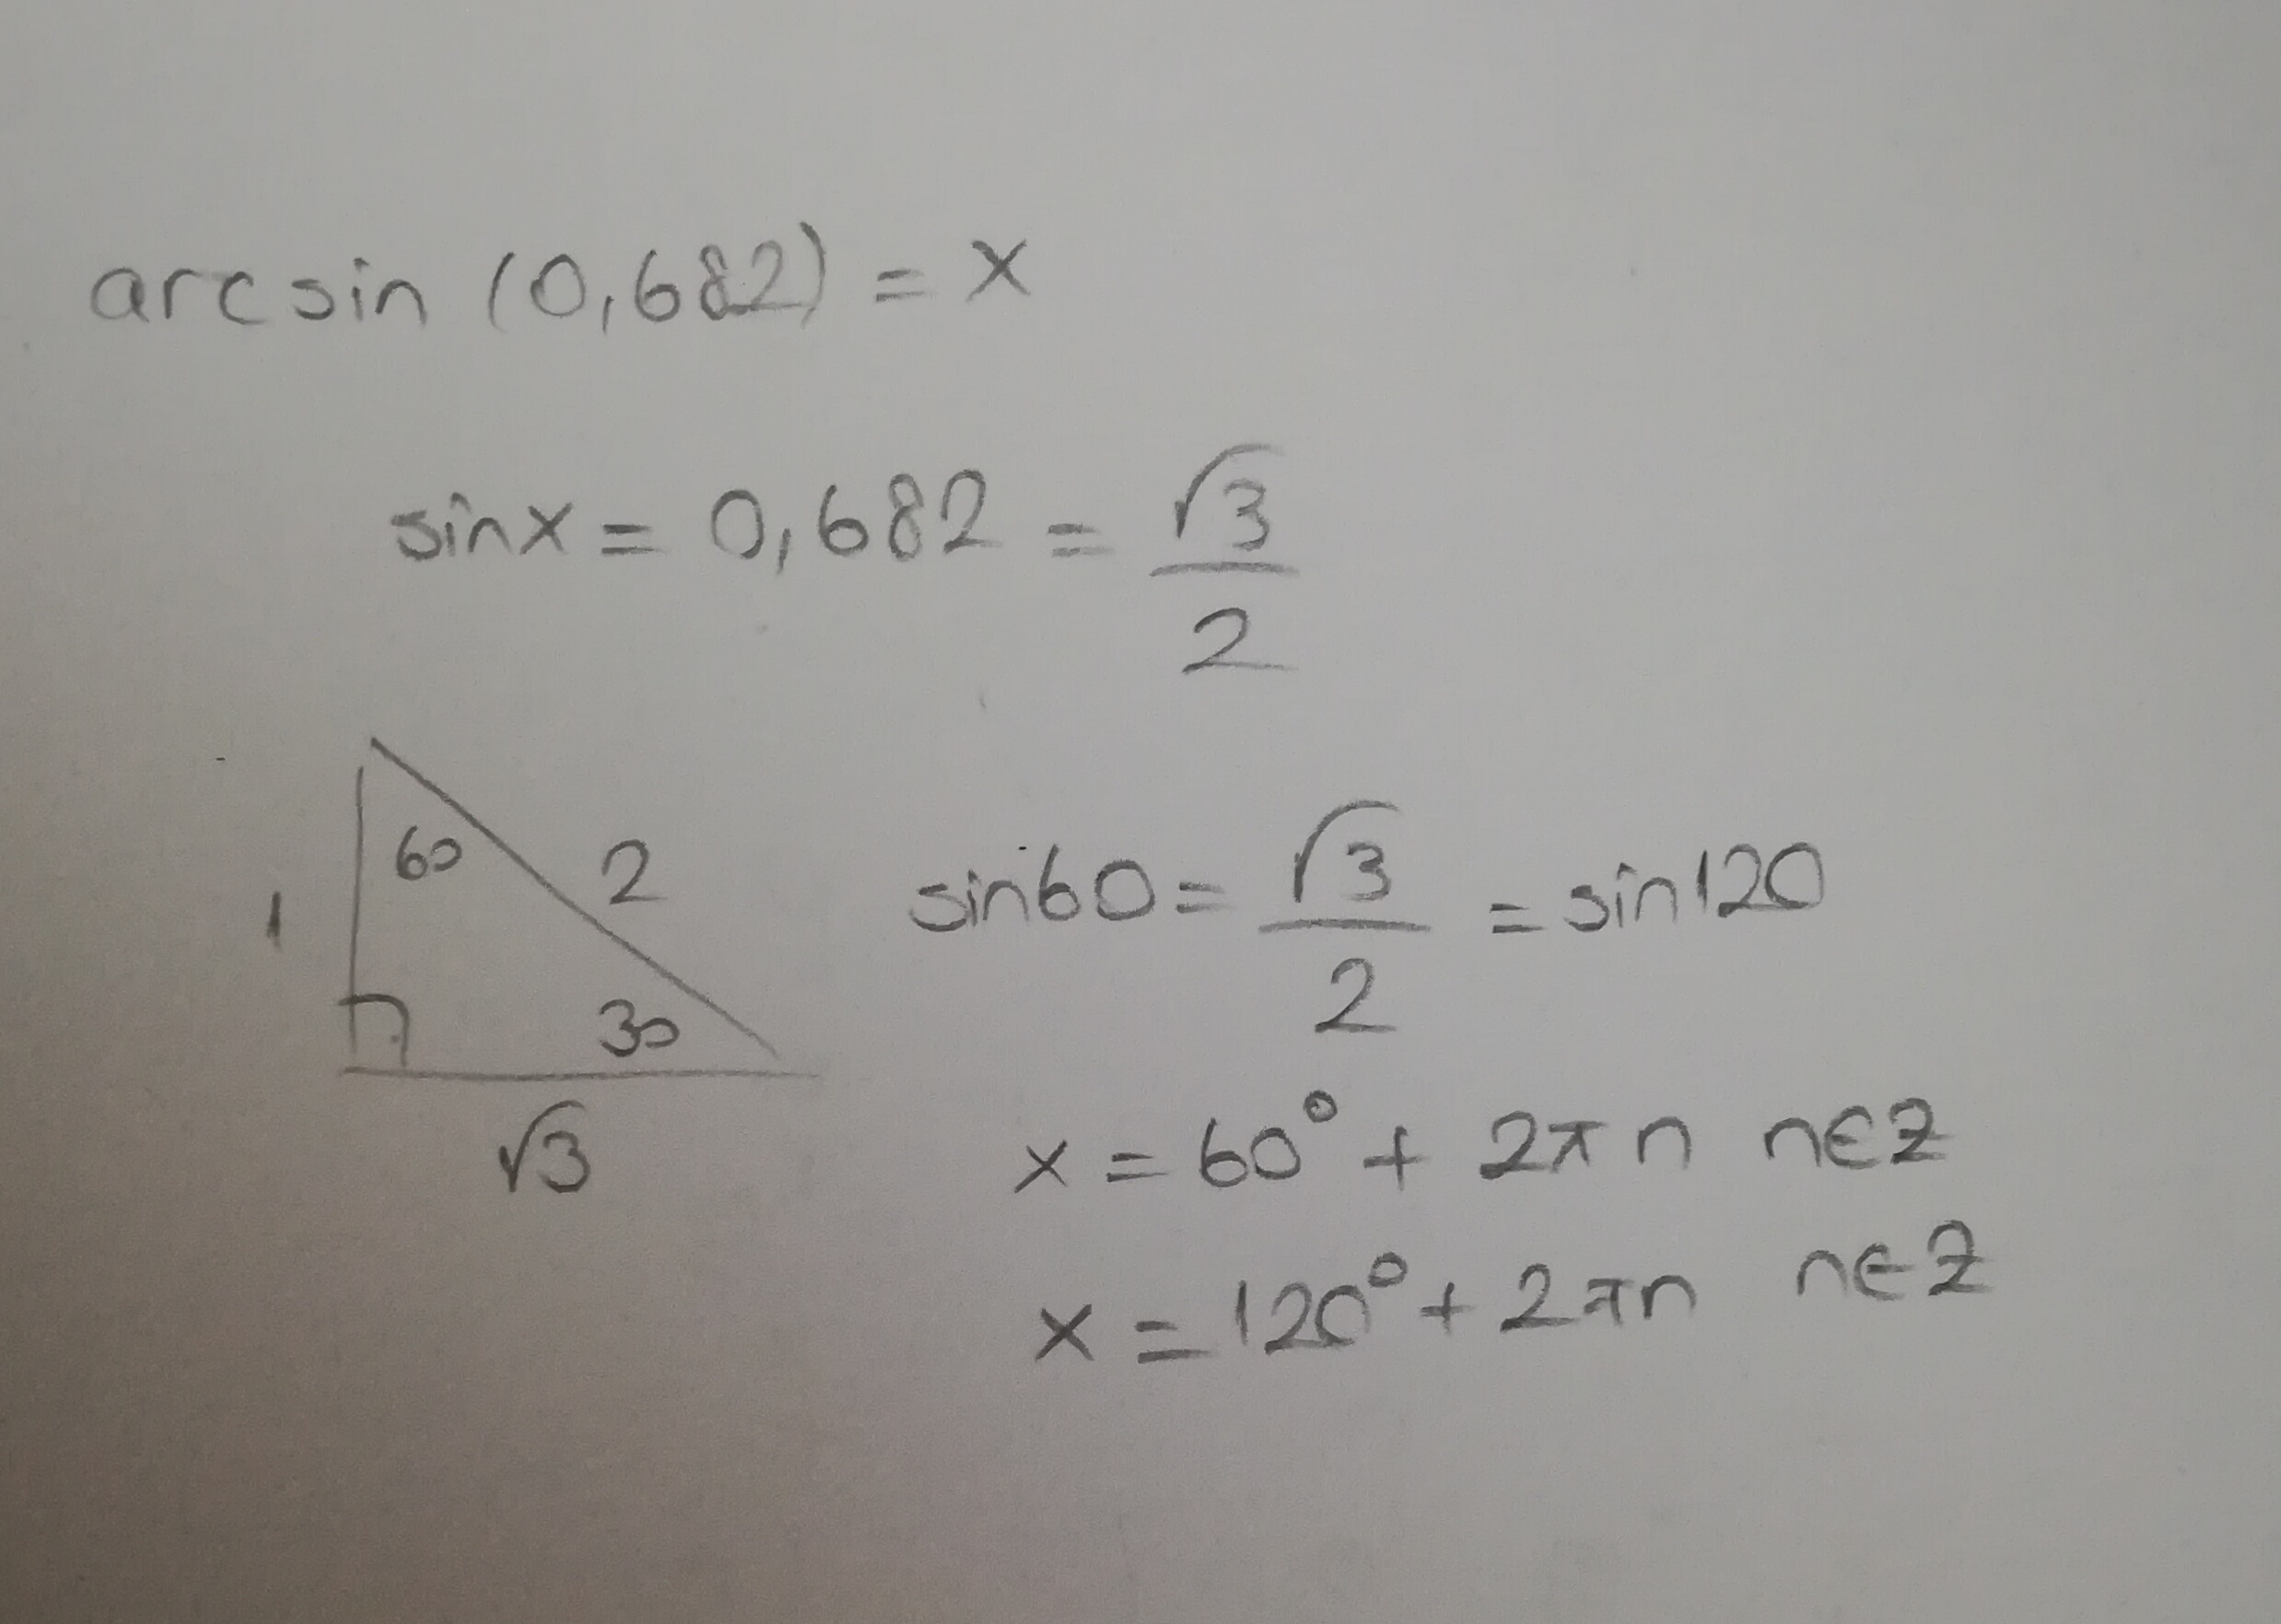 arcsin (0,682) = x
sinx = 0,682 = √3/2
60
2
1
30
√3
sin60 = √3/2 = sin120
x = 60° + 2πn n∈Z
x = 120° + 2πn n∈Z